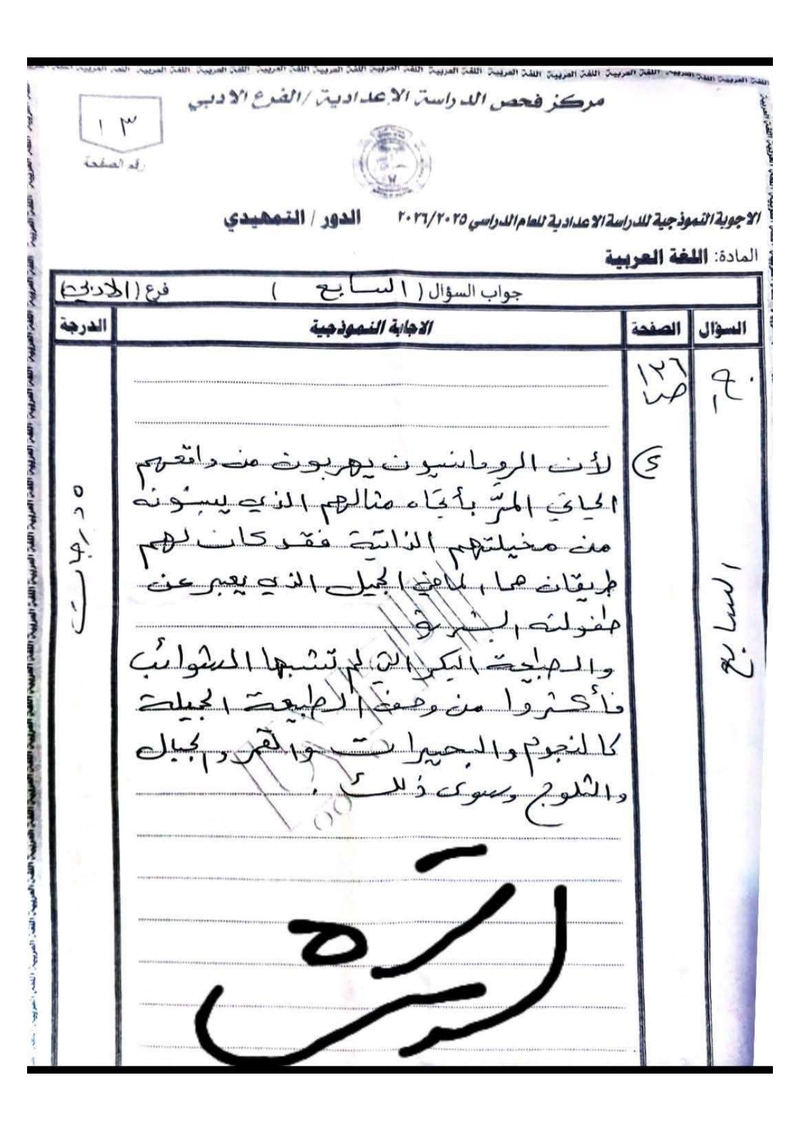 اللغة العربية اللغة العربية اللغة العربية اللغة العربية اللغة العربية اللغة العربية
مركز فحص الدراسة الاعدادية / الفرع الادبي
١٣
رقم الصفحة
الاجوبة النموذجية للدراسة الاعدادية للعام الدراسي ٢٠٢٦/٢٠٢٥ الدور / التمهيدي
المادة: اللغة العربية
جواب السؤال ( السابع ) فرع (الادبي)
السؤال الصفحة الاجابة النموذجية الدرجة
١٢٦
ص
٤) لأن الرومانسيون يهربون من واقعهم
الحياتي المرّ بأتجاه مثالهم الذي يبنونه
من مخيلتهم الذاتية فقد كان لهم
طريقان هما الماضي الجميل الذي يعبر عن
طفولته البشرية
والطبيعة البكر التي لم تشبها الشوائب
فأكثروا من وصف الطبيعة الجميلة
كالنجوم والبحيرات والقمر والجبال
والثلوج وسوى ذلك .
السابع
٥ درجات